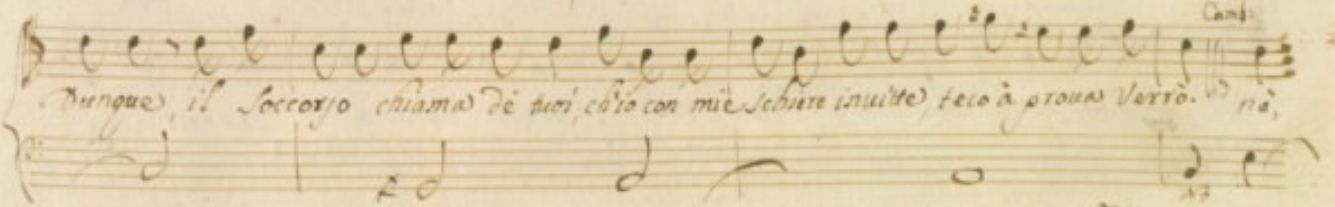 Camb:
Dunque, il soccorso chiama dè tuoi, ch'io con mie schiere invitte, teco à prova verrò. nò,